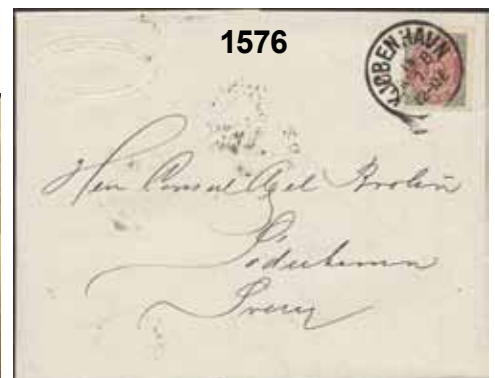 1576
KJØBENHAVN
Herr Consul Axel Brolin
Söderhamn